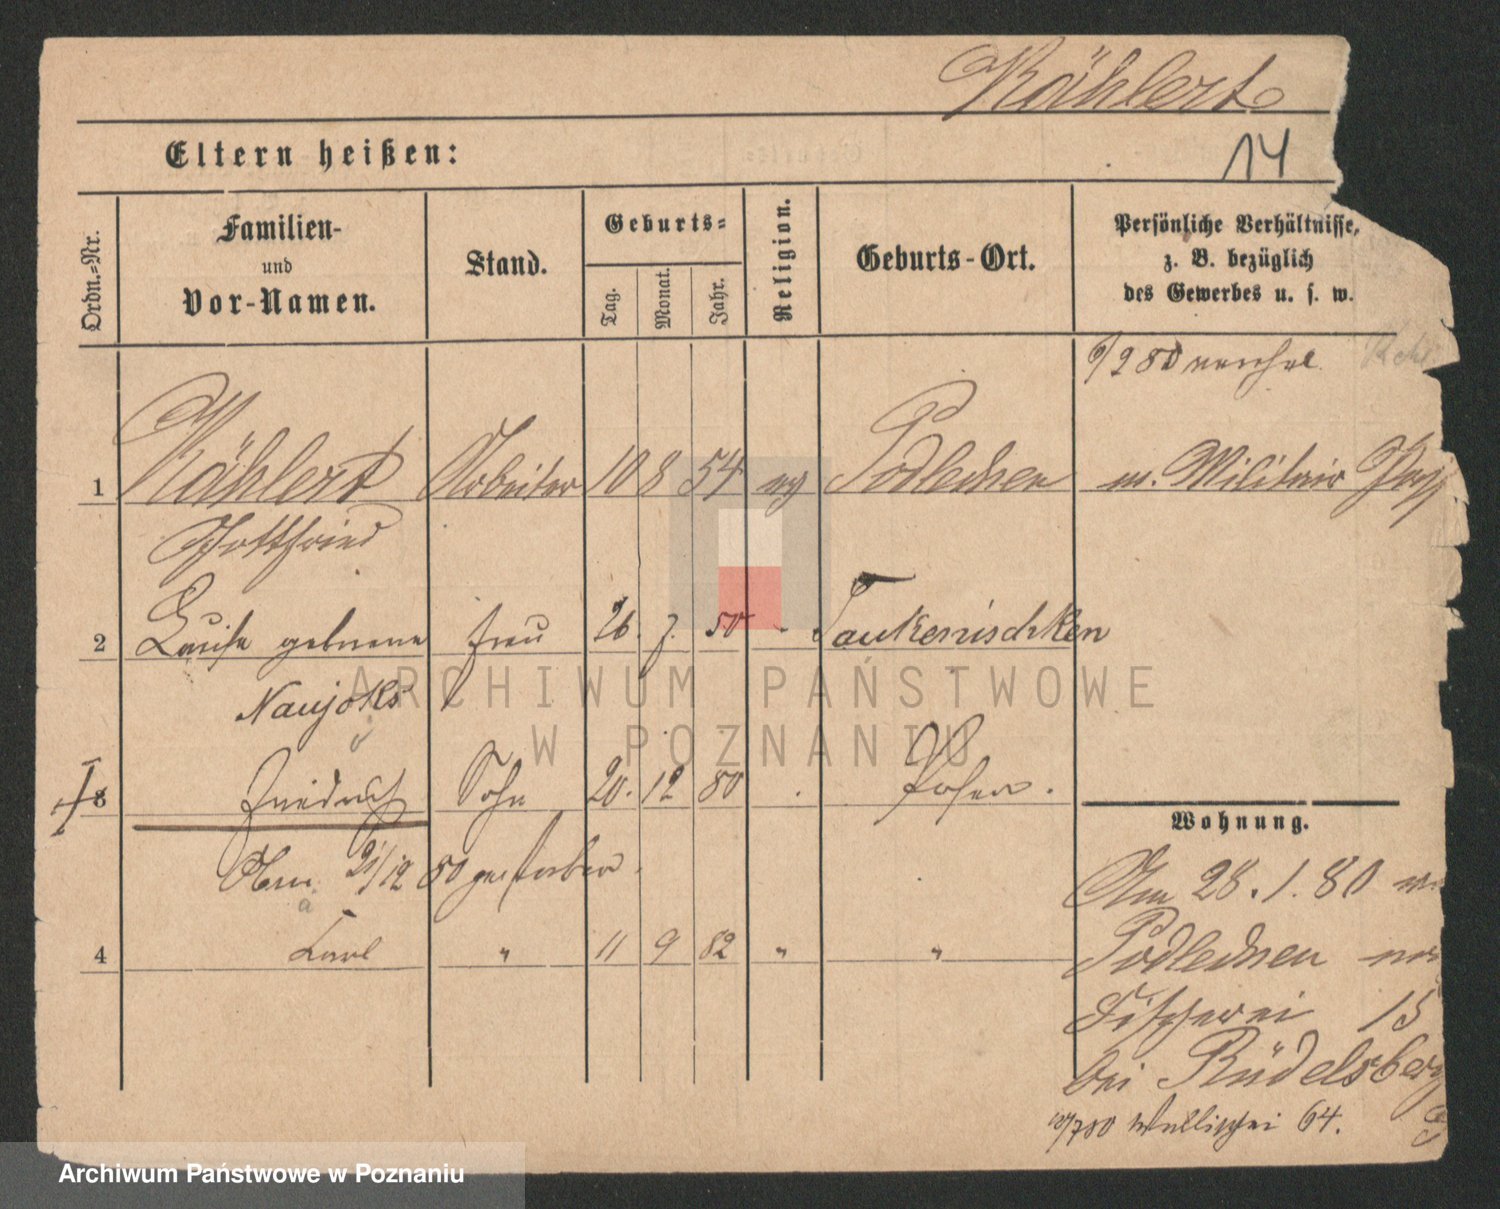 Kählert
Eltern heißen:
14
Ordn.-Nr.
Familien-
und
Vor-Namen.
Stand.
Geburts-
Tag.
Monat.
Jahr.
Religion.
Geburts-Ort.
Persönliche Verhältnisse,
z. B. bezüglich
des Gewerbes u. s. w.
1 Kählert Arbeiter 10 8 54 ev Podlechen m. Militair
Gottfried
2 Louise geborene Frau 26. 7. 50 - Taukenischken
Naujoks
3 Friedrich Sohn 20. 12 80 . Posen.
21/12 80 gestorben.
4 Karl " 11 9 82 " "
Wohnung.
Am 28. 1. 80
Podlechen
Fischerei 15
bei Rüdelsberg
Wallischei 64.
ARCHIWUM PAŃSTWOWE
W POZNANIU
Archiwum Państwowe w Poznaniu